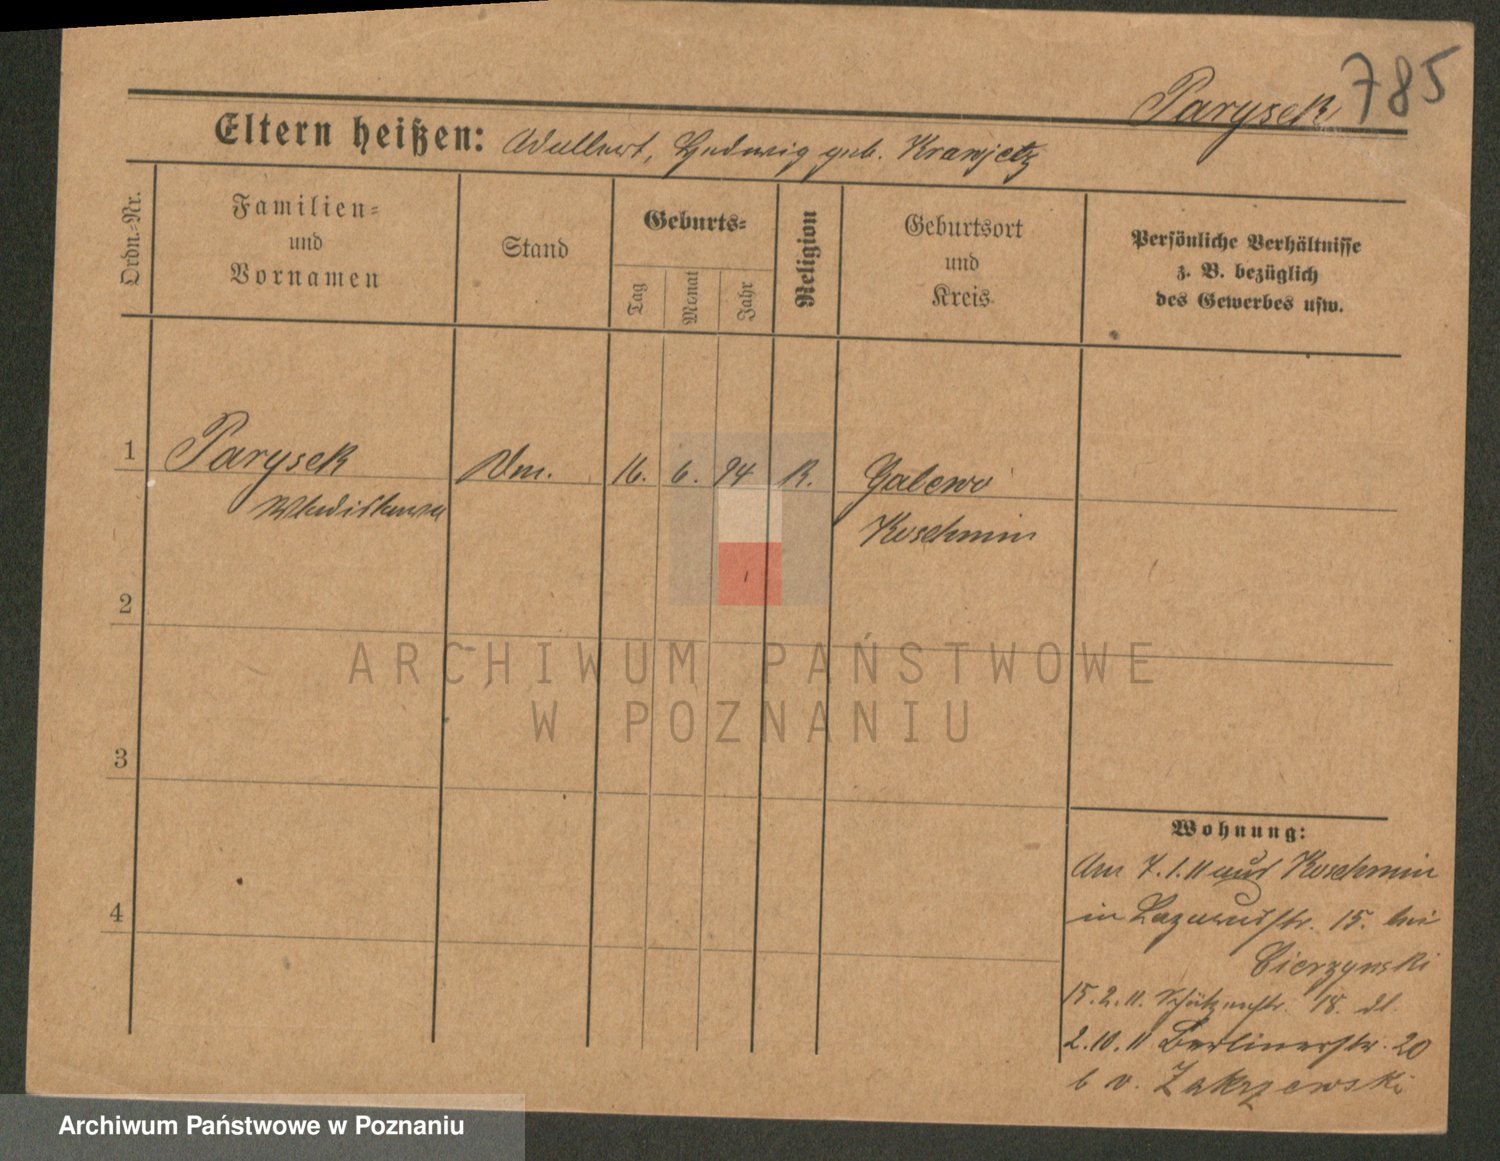 Parysek 785
Eltern heißen: Adalbert, Hedwig geb. Krawjetz
Ordn.-Nr.
Familien-
und
Vornamen
Stand
Geburts-
Tag
Monat
Jahr
Religion
Geburtsort
und
Kreis
Persönliche Verhältnisse
z. B. bezüglich
des Gewerbes usw.
1 Parysek 16. 6. 94 K. Galewo
Wladislawa Koschmin
2
3
4
Wohnung:
Am 7.1.11 aus Koschmin
in Lazarusstr. 15. bei
Cierzynski
15.2.11. Schützenstr. 18. dl.
2.10.11 Berlinerstr. 20
b v. Zakrzewski
ARCHIWUM PAŃSTWOWE
W POZNANIU
Archiwum Państwowe w Poznaniu